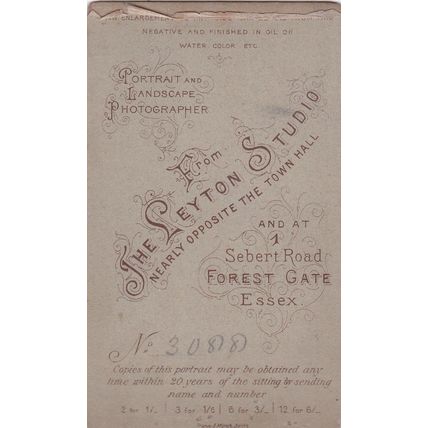 ENLARGEMENT
NEGATIVE AND FINISHED IN OIL OR
WATER COLOR ETC.
PORTRAIT AND
LANDSCAPE
PHOTOGRAPHER
From
THE LEYTON STUDIO
NEARLY OPPOSITE THE TOWN HALL
AND AT
1
Sebert Road
FOREST GATE
Essex.
No. 3088
Copies of this portrait may be obtained any
time within 20 years of the sitting by sending
name and number
2 for 1/- | 3 for 1/6 | 6 for 3/- | 12 for 6/-